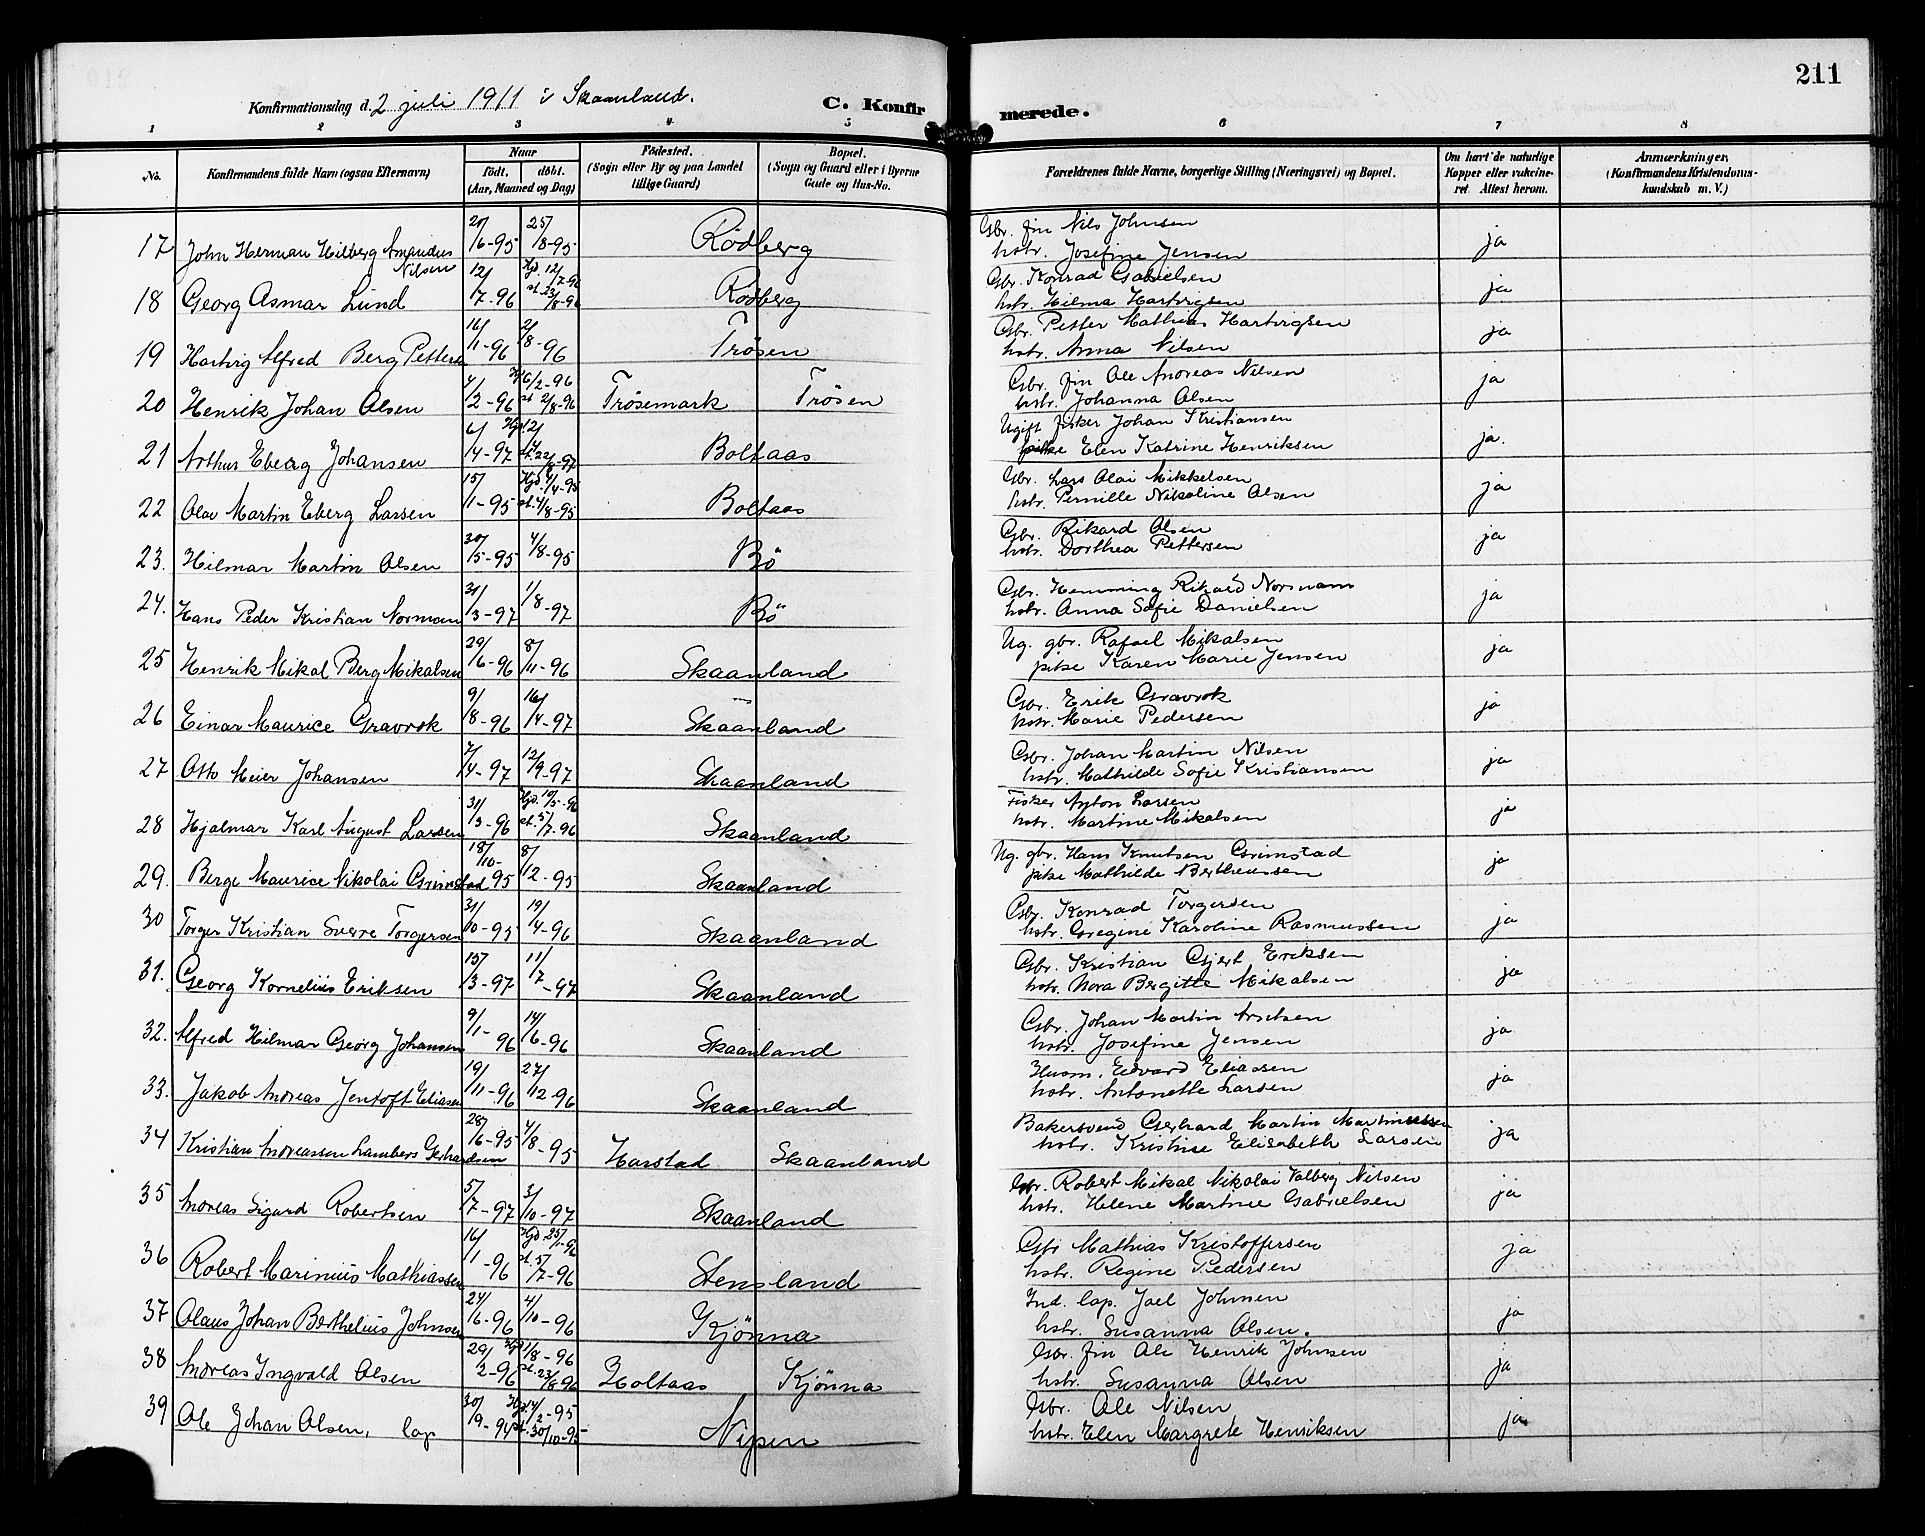 211
Konfirmationsdag d. 2 juli 1911 i Skaanland. C. Konfirmerede.
1 2 3 4 5 6 7 8
No. Konfirmandens fulde Navn (ogsaa Efternavn) Naar født. døbt. (Aar, Maaned og Dag) Fødested. (Sogn eller By og paa Landet tillige Gaard) Bopæl. (Sogn og Gaard eller i Byerne Gade og Hus-No. Forældrenes fulde Navne, borgerlige Stilling (Næringsvei) og Bopæl. Om havt de naturlige Kopper eller vaksineret. Attest herom. Anmærkninger. (Konfirmandens Kristendomskundskab m. V.)
17 John Herman Hilberg Amandus Nilsen 20/6-95 25/8-95 Rödberg Gbr. fin Nils Johnsen hstr. Josefine Jensen ja
18 Georg Asmar Lund 12/7-96 Hjd. 12/7-96 st. 23/8-96 Rödberg Gbr. Konrad Gabrielsen hstr. Hilma Hartvigsen ja
19 Hartvig Alfred Berg Pettersen 16/1-96 2/8-96 Trösen Gbr. Petter Mathias Hartvigsen hstr. Anna Nilsen ja
20 Henrik Johan Olsen 4/2-96 Hjd 6/2-96 st 2/8-96 Trösemark Trösen Gbr. fin Ole Andreas Nilsen hstr. Johanna Olsen ja
21 Arthur Eberg Johansen 6/4-97 st. 22/8-97 Boltaas Ugift fisker Johan Kristiansen pike Elen Katrine Henriksen ja.
22 Olav Martin Eberg Larsen 15/1-95 st. 4/8-95 Boltaas Gbr. Lars Olai Mikkelsen hstr. Pernille Nikoline Olsen ja
23. Hilmar Martin Olsen 30/5-95 4/8-95 Bö Gbr. Rikard Olsen hstr. Dorthea Pettersen ja
24. Hans Peder Kristian Normann 31/3-97 1/8-97 Bö Gbr. Hemming Rikard Normann hstr. Anna Sofie Danielsen ja
25 Henrik Mikal Berg Mikalsen 29/6-96 8/11-96 Skaanland Ug. gbr. Rafael Mikalsen pike Karen Marie Jensen ja
26 Einar Maurice Gravrok 9/8-96 16/4-97 Skaanland Gbr. Erik Gravrok hstr. Marie Pedersen ja
27 Otto Meier Johansen 7/4-97 12/9-97 Skaanland Gbr. Johan Martin Nilsen hstr. Mathilde Sofie Kristiansen ja
28 Hjalmar Karl August Larsen 31/3-96 Hjd. 19/5-96 st. 5/7-96 Skaanland Fisker Anton Larsen hstr. Martine Mikalsen ja
29. Berge Maurice Nikolai Grimstad 18/10-95 8/12-95 Skaanland Ug. gbr. Hans Knutsen Grimstad pike Mathilde Bertheussen ja
30 Torger Kristian Sverre Torgersen 31/10-95 19/4-96 Skaanland Gbr. Konrad Torgersen hstr. Gregine Karoline Rasmussen ja
31. Georg Kornelius Eriksen 15/3-97 11/7-97 Skaanland Gbr. Kristian Gjert Eriksen hstr. Nora Bergitte Mikalsen ja
32. Alfred Hilmar Georg Johansen 9/1-96 14/6-96 Skaanland Gbr. Johan Martin Arntsen hstr. Josefine Jensen ja
33. Jakob Andreas Jentoft Eliasen 19/11-96 27/12-96 Skaanland Husm. Edvard Eliassen hstr. Antonette Larsen ja
34 Kristian Andreassen Lambers Gerhardsen 28/6-95 4/8-95 Harstad Skaanland Bakersvend Gerhard Martin Martinussen hstr. Kristine Elisabeth Larsen ja
35 Andreas Sigurd Robertsen 5/7-97 3/10-97 Skaanland Gbr. Robert Mikal Nikolai Valberg Nilsen hstr. Helene Martine Gabrielsen ja
36 Robert Marinius Mathiassen 16/1-96 Hjd 25/1-96 st. 5/7-96 Stensland Gbr Mathias Kristoffersen hstr. Regine Pedersen ja
37 Olaus Johan Berthelius Johnsen 24/6-96 4/10-96 Kjönna Ind. lap. Joel Johnsen hstr. Susanna Olsen. ja
38 Andreas Ingvald Olsen 29/2-96 Hjd 1/8-96 st. 23/8-96 Holtaas Kjönna Gbr. fin Ole Henrik Johnsen hstr. Susanna Olsen ja
39 Ole Johan Olsen, lap 30/9-94 st. 30/10-95 Nipen Gbr. Ole Nilsen hstr. Elen Margrete Henriksen ja